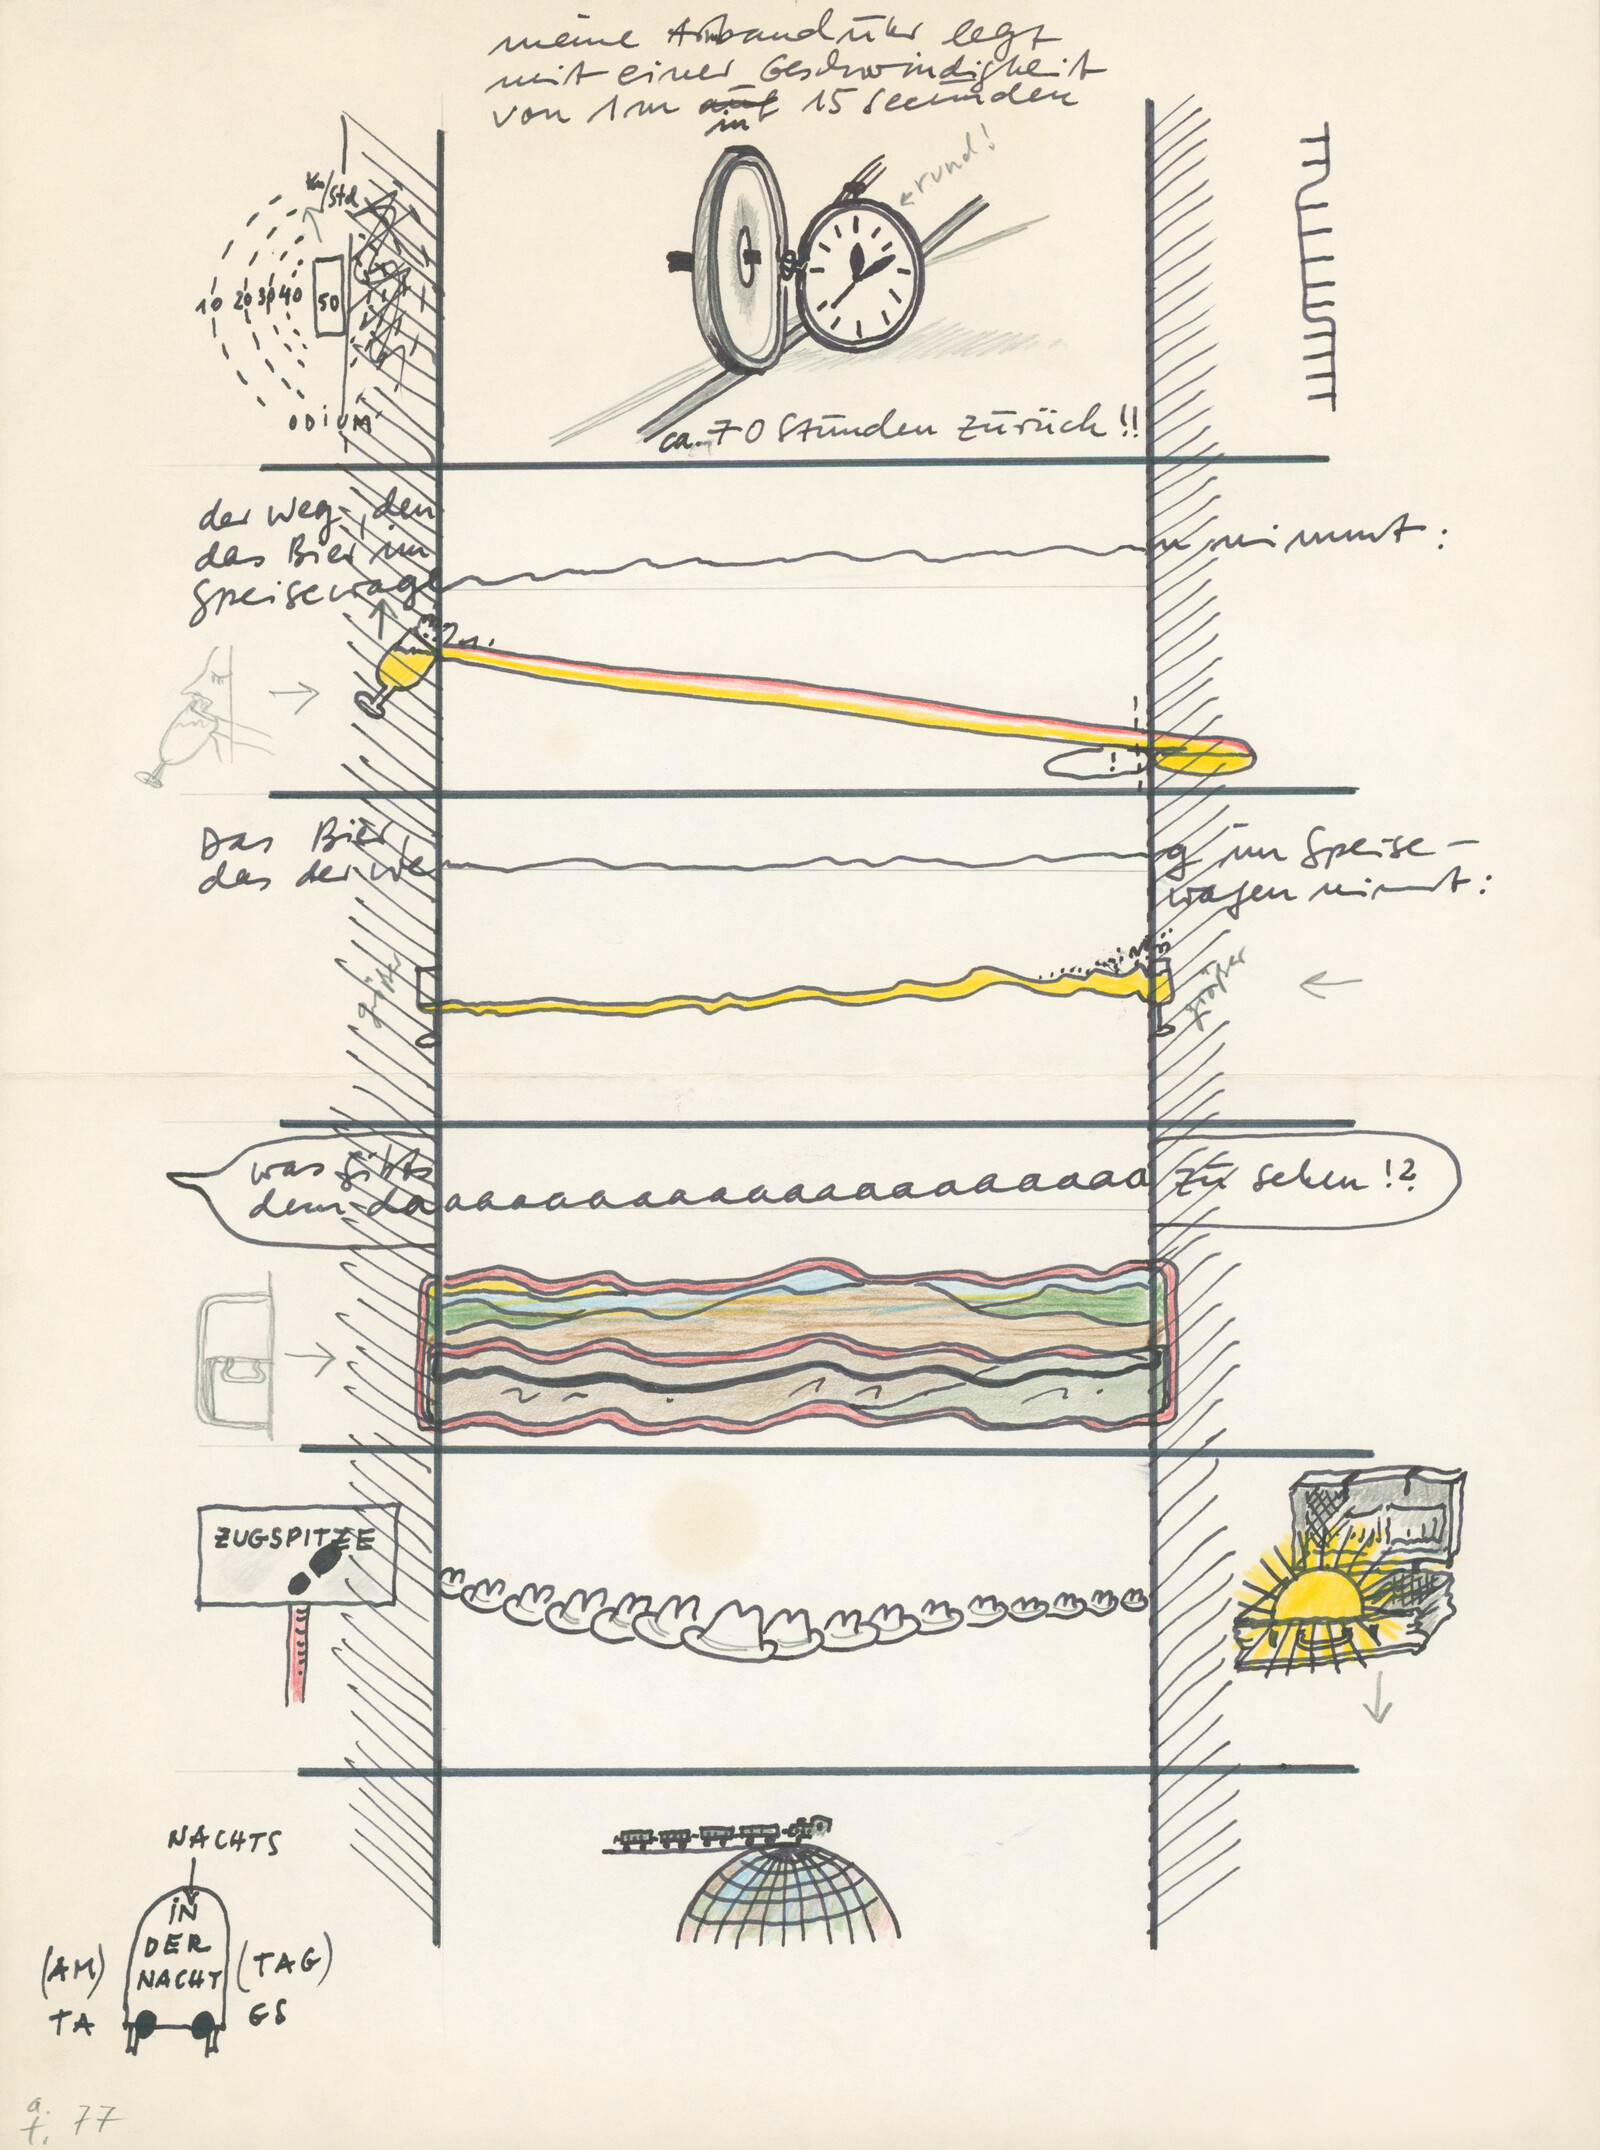 meine Armbanduhr legt
mit einer Geschwindigkeit
von 1m auf in 15 Secunden
rund!
Km/Std
10 20 30 40 50
ODIUM
ca. 70 Stunden zurück!!
der Weg, den
das Bier im
Speisewagen nimmt:
!
Das Bier,
das der Weg im Speise-
wagen nimmt:
größer größer
was gibts
denn daaaaaaaaaaaaaaaaaa zu sehen!?
ZUGSPITZE
NACHTS
IN
DER
(AM) NACHT (TAG)
TA GS
a.
t. 77